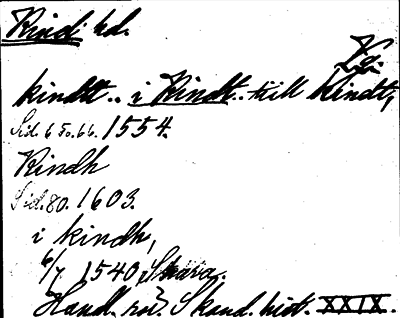 Kind: hd.
Vg.
kindtt.. i Kindt.. till Kindt,
Sid. 65o.66. 1554.
Kindh
Sid. 80. 1603.
i kindh,
6/7 1540, Skara.
Hand. rör. Skand. hist. XXIX.